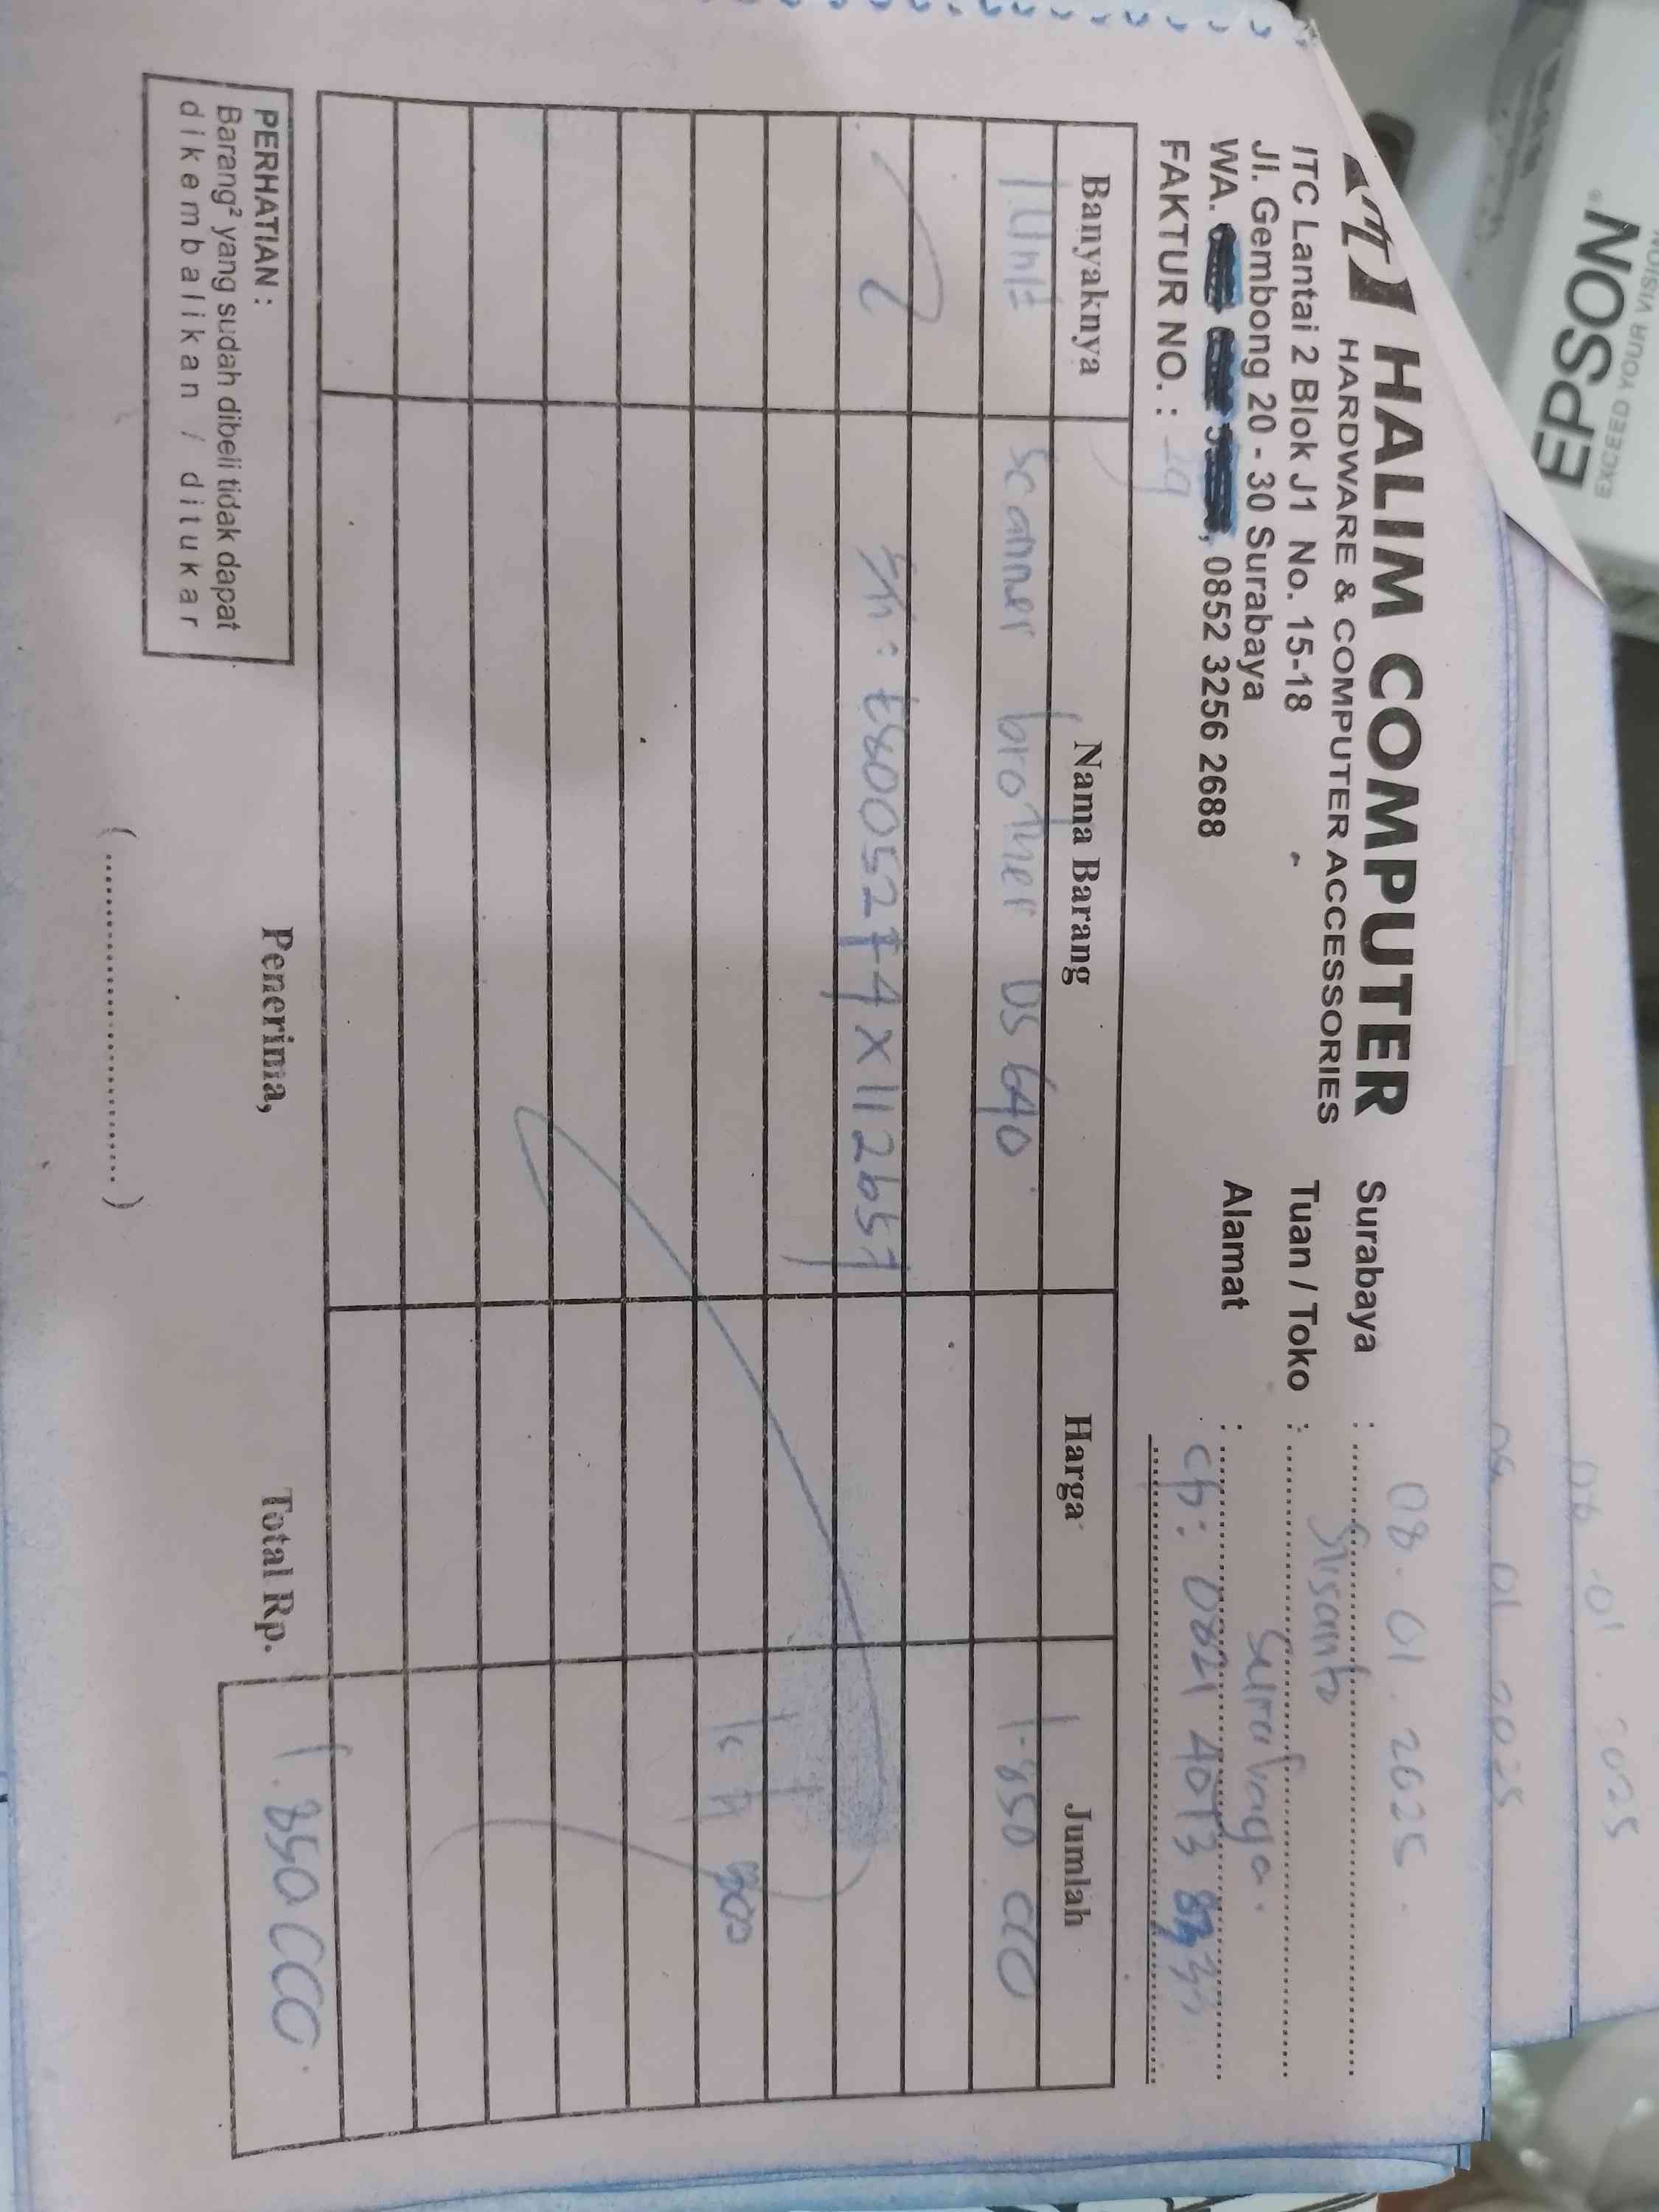 HALIM COMPUTER
HARDWARE & COMPUTER ACCESSORIES
ITC Lantai 2 Blok J1 No. 15-18
Jl. Gembong 20 - 30 Surabaya
WA. , 0852 3256 2688
FAKTUR NO. :
Surabaya : 08 . 01 . 2025 .
Tuan / Toko : Susanto
Alamat : Surabaya .
cp : 0821 4013
Banyaknya Nama Barang Harga Jumlah
1 Unit scanner brother DS 640 1-850 000
PERHATIAN :
Barang² yang sudah dibeli tidak dapat
dikembalikan / ditukar
Penerima,
( ................................ )
Total Rp. 1.850 000.
EPSON
EXCEED YOUR VISION
09 01 2025
06 . 01 . 2025